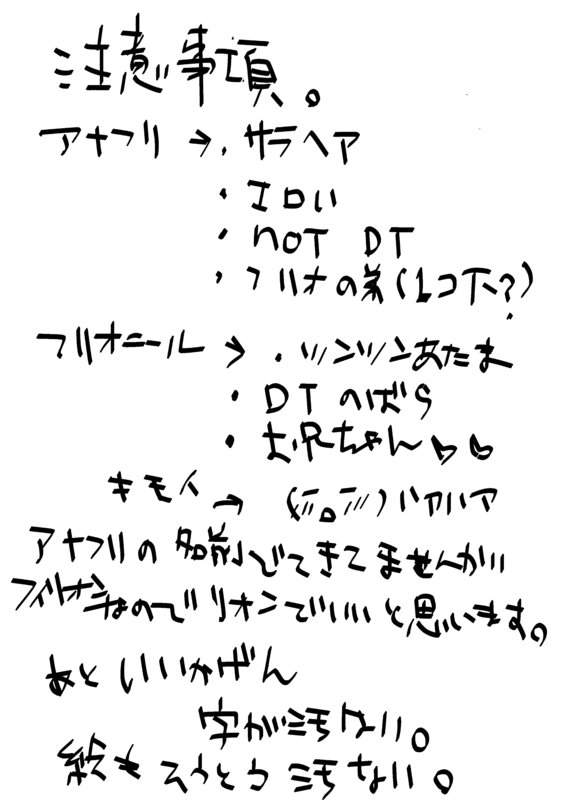 注意事項。
アナフリ → ・サラヘア
・エロい
・NOT DT
・フリオの弟(1コ下?)
フリオニール → ・ツンツンあたま
・DTのばら
・お兄ちゃん
キモイ → ( ﾟдﾟ)ハァハァ
アナフリの名前でてきてませんがい
フィリオンなのでリオンでいいと思います。
あといいかげん
字が汚ない。
絵もそうとう汚ない。